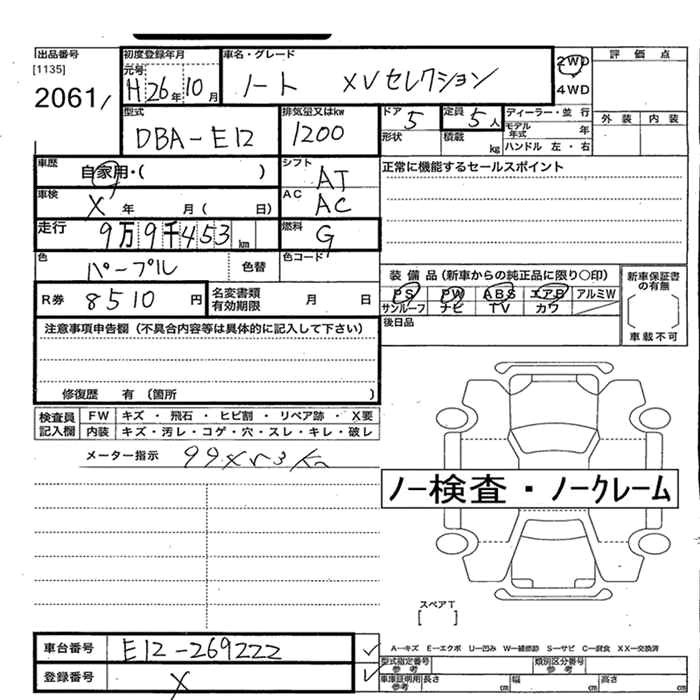 出品番号 初度登録年月 車名・グレード 評価点
[1135] 元号 2WD
2061 H26年10月 ノート XVセレクション 4WD
型式 排気量又はkw ドア 5 定員 5人 ディーラー・並行 外装 内装
DBA-E12 1200 形状 積載 kg モデル年式 年
ハンドル 左・右
車歴 自家用・( ) シフト AT 正常に機能するセールスポイント
車検 X 年 月( 日) AC AC
走行 9万9千453km 燃料 G
色 パープル 色替 色コード 装備品(新車からの純正品に限り○印) 新車保証書の有無
R券 8510円 名変書類有効期限 月 日 PS PW ABS エアB アルミW
サンルーフ ナビ TV カワ
車載不可
注意事項申告欄(不具合内容等は具体的に記入して下さい) 後日品
修復歴 有(箇所 )
検査員記入欄 FW キズ・飛石・ヒビ割・リペア跡・X要
内装 キズ・汚レ・コゲ・穴・スレ・キレ・破レ
メーター指示
ノー検査・ノークレーム
スペアT
[ ]
車台番号 E12-269222 A-キズ E-エクボ U-凹み W-補修跡 S-サビ C-腐食 XX-交換済
登録番号 X 型式指定番号 参考 類別区分番号 参考
車庫証明用参考 長さ cm 幅 cm 高さ cm